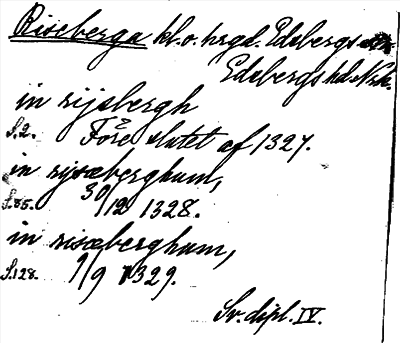 Riseberga kl.o. hrgd. Edsbergs sn.
Edsbergs hd. Nrk.
in rijsbergh
S.2. Före slutet af 1327.
in rysæberghum,
S.85. 30/12 1328.
in risæberghum,
S.128. 9/9 1329.
Sv. dipl. IV.